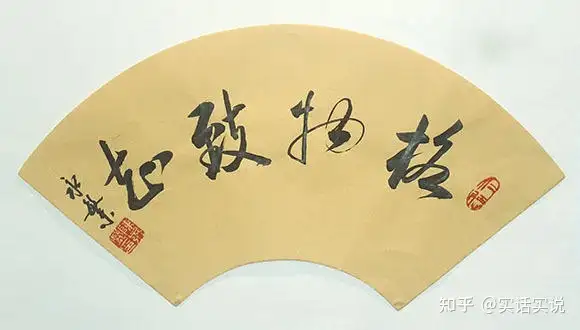 格物致知
知乎 @实话实说